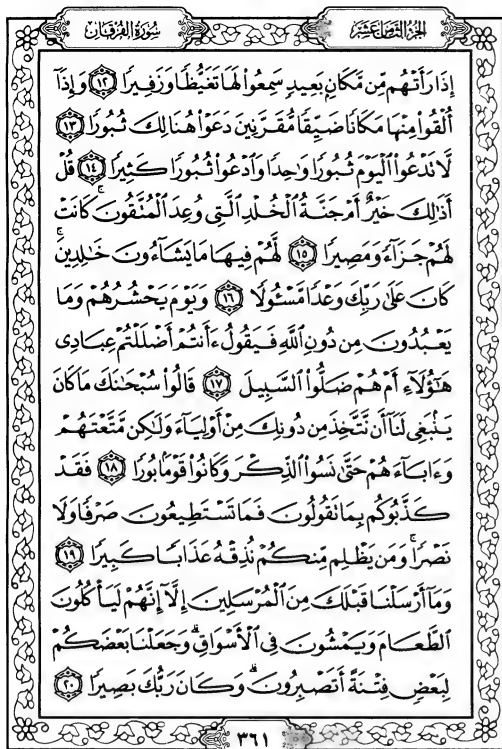 سُورَةُ الْفُرْقَانِ
الجُزْءُ الثَّامِنَ عَشَرَ
إِذَا رَأَتْهُم مِّن مَّكَانٍ بَعِيدٍ سَمِعُوا۟ لَهَا تَغَيُّظًا وَزَفِيرًا ١٢ وَإِذَآ
أُلْقُوا۟ مِنْهَا مَكَانًا ضَيِّقًا مُّقَرَّنِينَ دَعَوْا۟ هُنَالِكَ ثُبُورًا ١٣
لَّا تَدْعُوا۟ الْيَوْمَ ثُبُورًا وَٰحِدًا وَادْعُوا۟ ثُبُورًا كَثِيرًا ١٤ قُلْ
أَذَٰلِكَ خَيْرٌ أَمْ جَنَّةُ الْخُلْدِ الَّتِى وُعِدَ الْمُتَّقُونَ ۚ كَانَتْ
لَهُمْ جَزَآءً وَمَصِيرًا ١٥ لَّهُمْ فِيهَا مَا يَشَآءُونَ خَٰلِدِينَ ۚ
كَانَ عَلَىٰ رَبِّكَ وَعْدًا مَّسْـُٔولًا ١٦ وَيَوْمَ يَحْشُرُهُمْ وَمَا
يَعْبُدُونَ مِن دُونِ اللَّهِ فَيَقُولُ ءَأَنتُمْ أَضْلَلْتُمْ عِبَادِى
هَٰٓؤُلَآءِ أَمْ هُمْ ضَلُّوا۟ السَّبِيلَ ١٧ قَالُوا۟ سُبْحَٰنَكَ مَا كَانَ
يَنۢبَغِى لَنَآ أَن نَّتَّخِذَ مِن دُونِكَ مِنْ أَوْلِيَآءَ وَلَٰكِن مَّتَّعْتَهُمْ
وَءَابَآءَهُمْ حَتَّىٰ نَسُوا۟ الذِّكْرَ وَكَانُوا۟ قَوْمًۢا بُورًا ١٨ فَقَدْ
كَذَّبُوكُم بِمَا تَقُولُونَ فَمَا تَسْتَطِيعُونَ صَرْفًا وَلَا
نَصْرًا ۚ وَمَن يَظْلِم مِّنكُمْ نُذِقْهُ عَذَابًا كَبِيرًا ١٩
وَمَآ أَرْسَلْنَا قَبْلَكَ مِنَ الْمُرْسَلِينَ إِلَّآ إِنَّهُمْ لَيَأْكُلُونَ
الطَّعَامَ وَيَمْشُونَ فِى الْأَسْوَاقِ ۗ وَجَعَلْنَا بَعْضَكُمْ
لِبَعْضٍ فِتْنَةً أَتَصْبِرُونَ ۗ وَكَانَ رَبُّكَ بَصِيرًا ٢٠
٣٦١